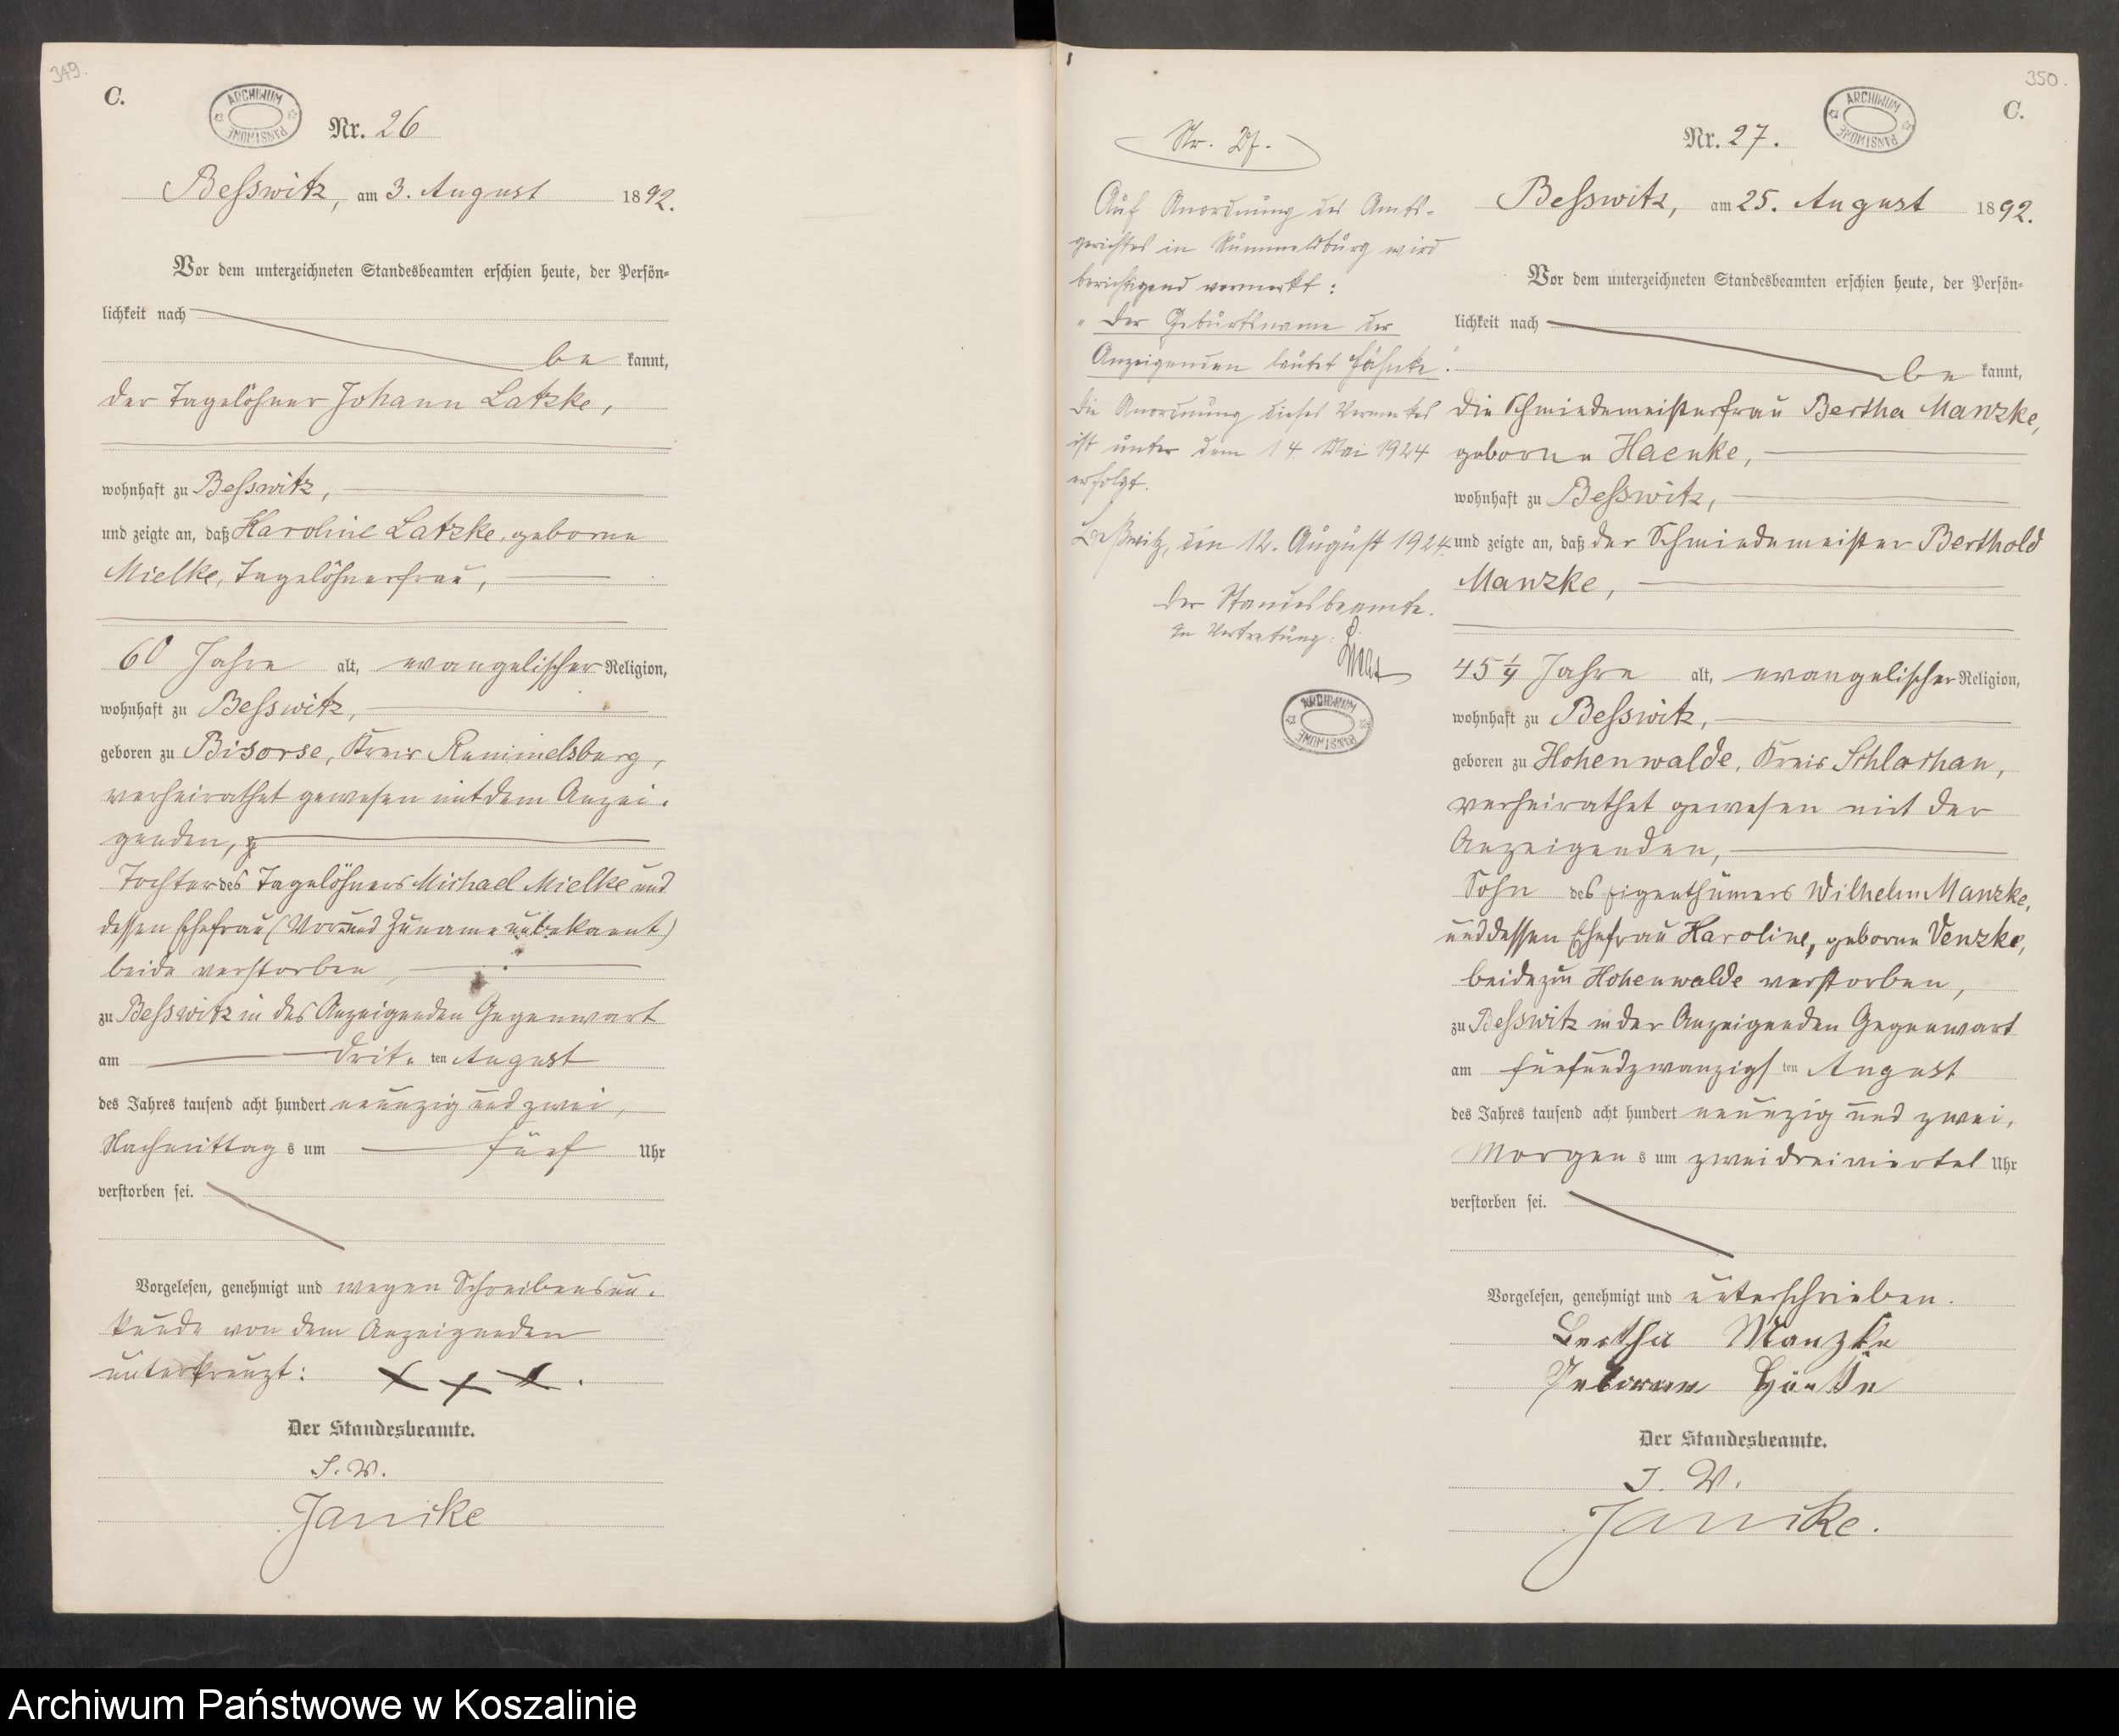 349.
C.
ARCHIWUM PAŃSTWOWE
Nr. 26
Besswitz, am 3. August 1892.
Vor dem unterzeichneten Standesbeamten erschien heute, der Persön-
lichkeit nach
be kannt,
der Tagelöhner Johann Latzke,
wohnhaft zu Besswitz,
und zeigte an, daß Karoline Latzke, geborne
Mielke, Tagelöhnerfrau,
60 Jahre alt, evangelischer Religion,
wohnhaft zu Besswitz,
geboren zu Bisorse, Kreis Rummelsburg,
verheirathet gewesen mit dem Anzei-
genden,
Tochter des Tagelöhners Michael Mielke und
dessen Ehefrau (Vor und Zuname unbekannt)
beide verstorben,
zu Besswitz in des Anzeigenden Gegenwart
am drit ten August
des Jahres tausend acht hundert neunzig und zwei,
Nachmittag s um fünf Uhr
verstorben sei.
Vorgelesen, genehmigt und wegen Schreibensun-
kunde von dem Anzeigenden
unterkreuzt: X X X.
Der Standesbeamte.
J. V.
Janike
350.
C.
ARCHIWUM PAŃSTWOWE
Nr. 27.
Besswitz, am 25. August 1892.
Vor dem unterzeichneten Standesbeamten erschien heute, der Persön-
lichkeit nach
be kannt,
die Schmiedemeisterfrau Bertha Manzke,
geborne Haenke,
wohnhaft zu Besswitz,
und zeigte an, daß der Schmiedemeister Berthold
Manzke,
45 1/4 Jahre alt, evangelischer Religion,
wohnhaft zu Besswitz,
geboren zu Hohenwalde, Kreis Schlochau,
verheirathet gewesen mit der
Anzeigenden,
Sohn des Eigenthümers Wilhelm Manzke,
und dessen Ehefrau Karoline, geborne Venzke,
beide zu Hohenwalde verstorben,
zu Besswitz in der Anzeigenden Gegenwart
am fünfundzwanzigs ten August
des Jahres tausend acht hundert neunzig und zwei,
Morgen s um zwei dreiviertel Uhr
verstorben sei.
Vorgelesen, genehmigt und unterschrieben.
Bertha Manzke
Geborene Hänke
Der Standesbeamte.
J. V.
Janike.
Nr. 27.
Auf Anordnung des Amts-
gerichtes in Rummelsburg wird
berichtigend vermerkt:
" Der Geburtsname der
Anzeigenden lautet Hähnke".
Die Anordnung dieses Vermerkes
ist unter dem 14 Mai 1924
erfolgt.
Beßwitz, den 12. August 1924.
Der Standesbeamte.
In Vertretung:
ARCHIWUM PAŃSTWOWE
Archiwum Państwowe w Koszalinie